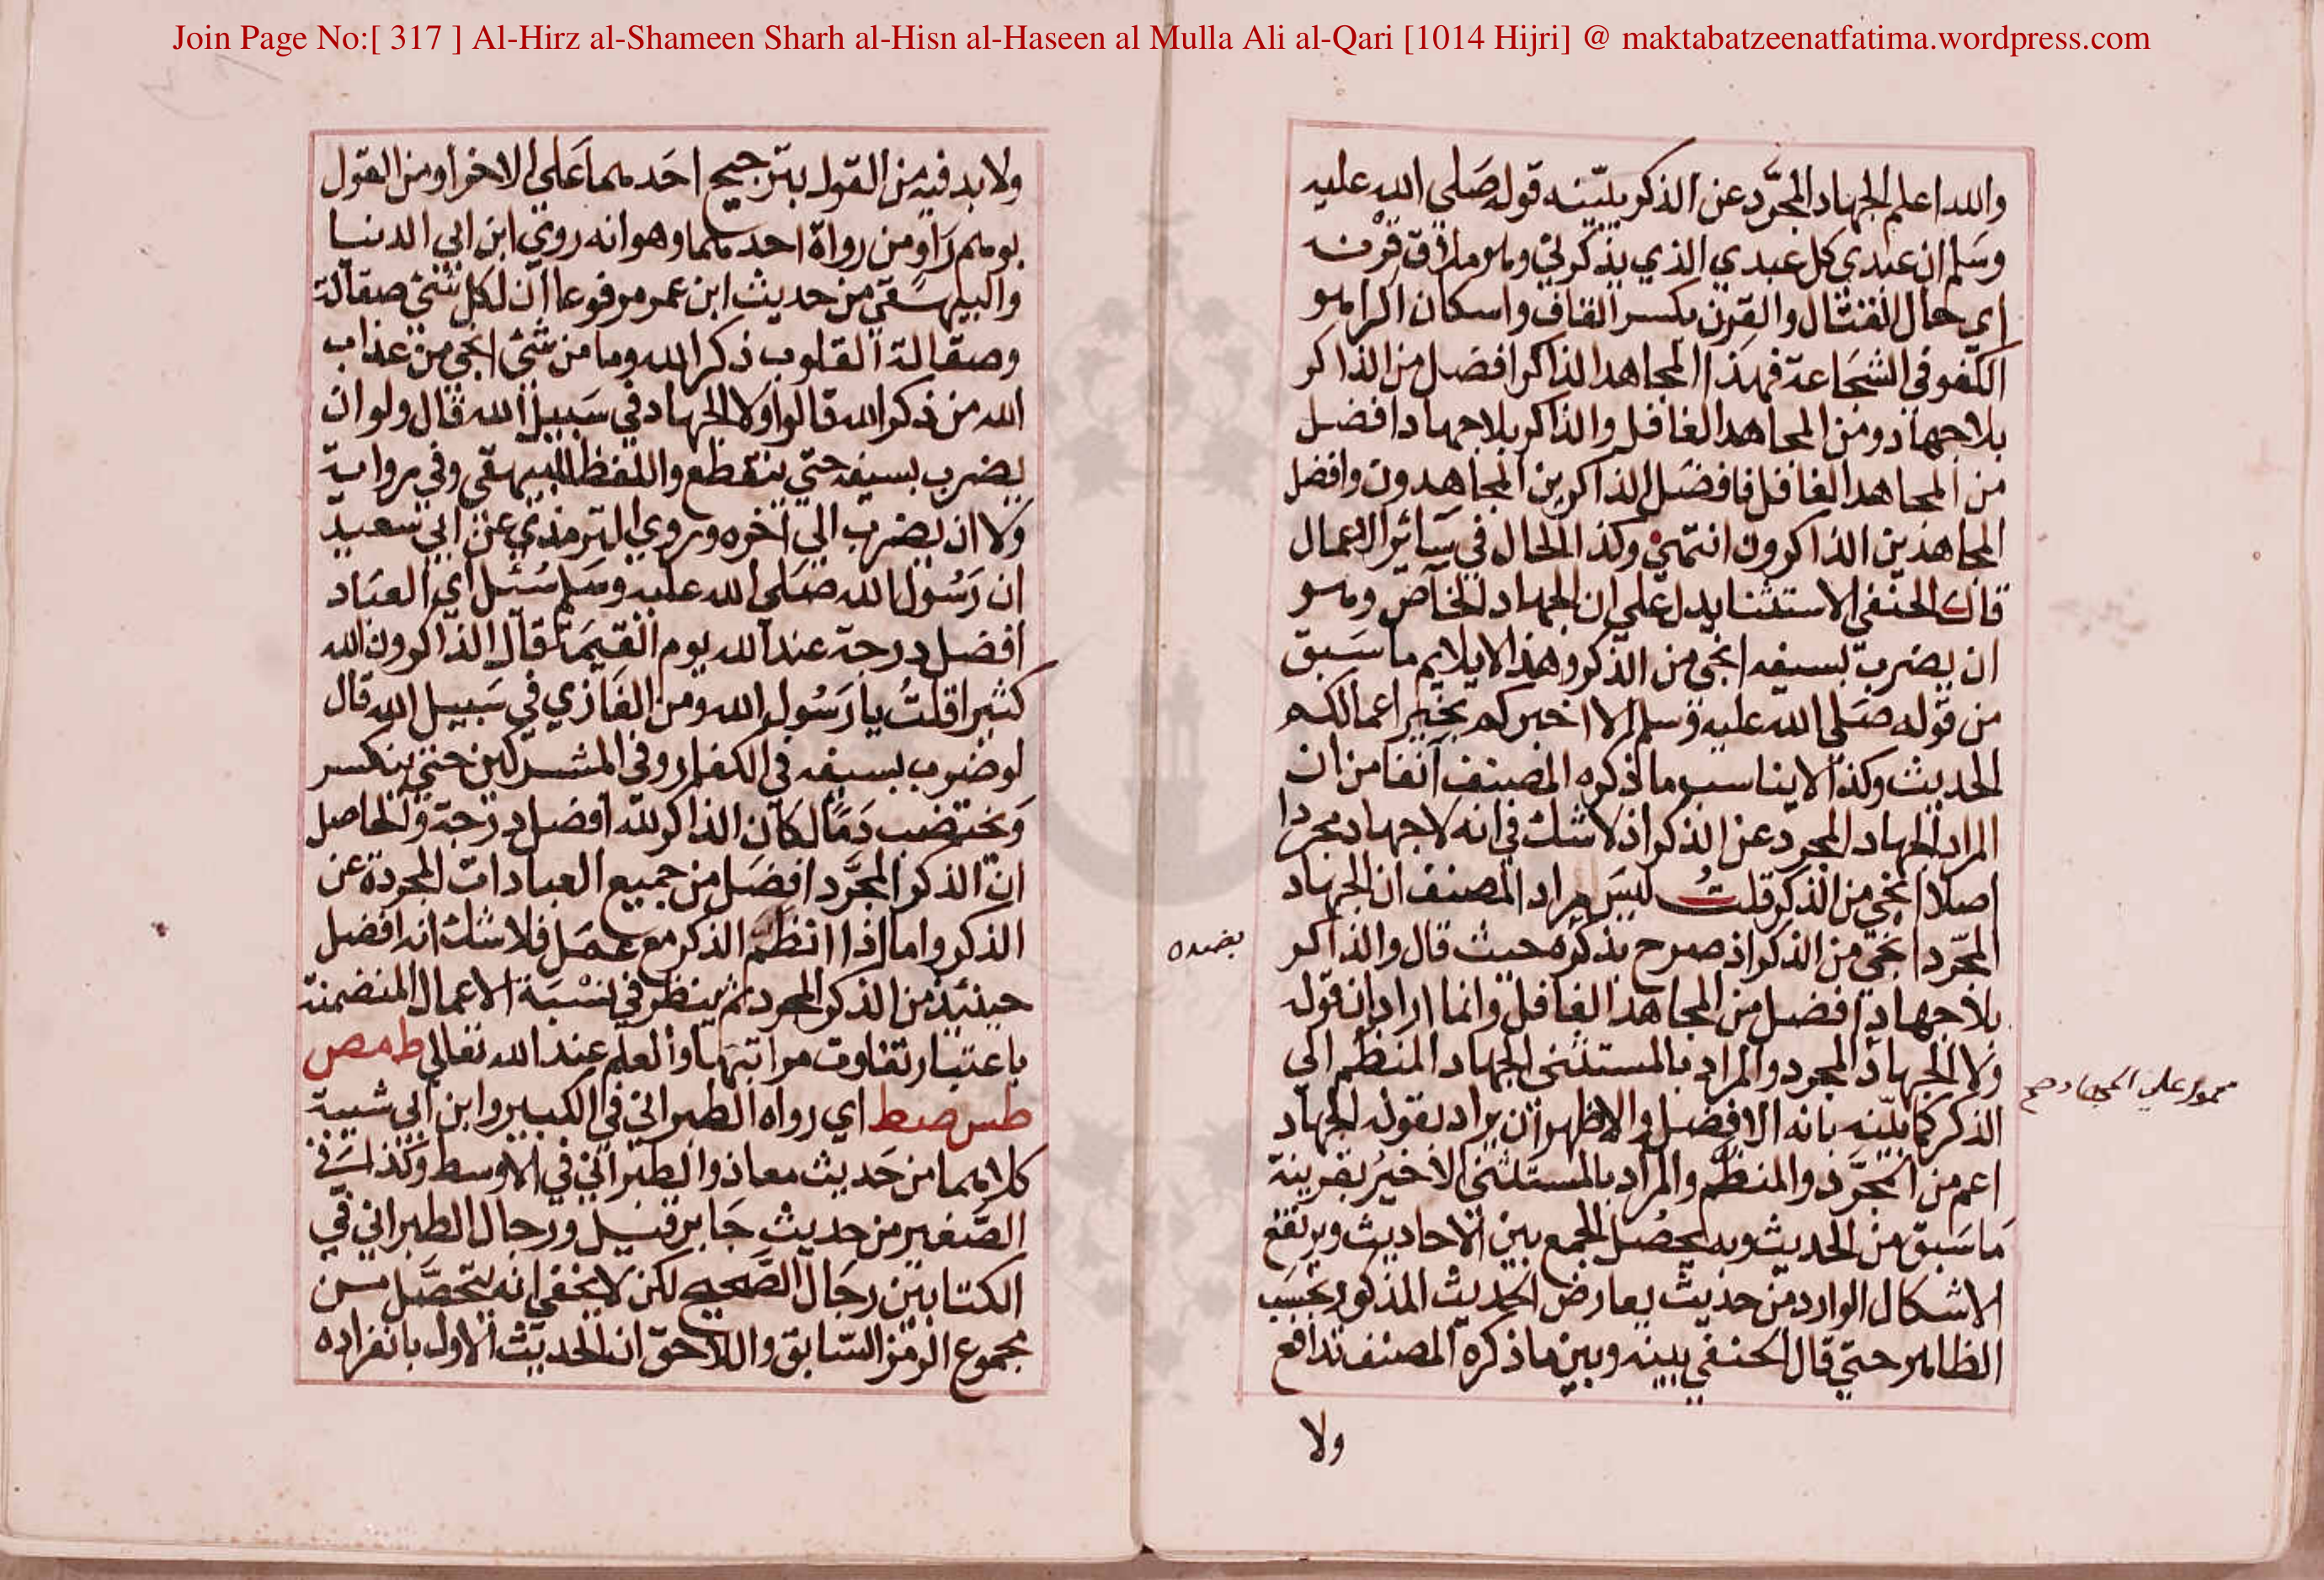 Join Page No:[ 317 ] Al-Hirz al-Shameen Sharh al-Hisn al-Haseen al Mulla Ali al-Qari [1014 Hijri] @ maktabatzeenatfatima.wordpress.com
والله اعلم الجهاد المجرَّد عن الذكر يبيّنه قوله صَلي الله عليه
وسَلم ان عبدي كل عبدي الذي يذكرني وهو ملاق قِرْنه
اي حال القتال والقِرن بكسر القاف واسكان الرا هو
الكفو في الشجَاعة فهذا المجاهد الذاكر افضل من الذاكر
بلا جهاد ومن المجاهد الغافل والذاكر بلا جهاد افضل
من المجاهد الغافل فافضَل الذاكرين المجاهدون وافضل
المجاهدين الذاكرون انتهي وكذا الحال في سَائر الاعمال
قال الحنفي الاستثنا يدل علي ان الجهاد الخاص وهو
ان يضرب بسيفه انجي من الذكر وهذا لا يلايم ما سَبق
من قوله صَلي الله عليه وسلم الا اخبركم بخير اعمالكم
الحديث وكذا لا يناسب ما ذكره المصنف آنفا من ان
المراد الجهاد المجرد عن الذكر اذ لا شك في انه لا جهاد مجردا
اصلا انجي من الذكر قلتُ ليسَ مراد المصنف ان الجهاد
المجرّد انجي من الذكر اذ صرح بذكره حيث قال والذاكر
بضده
بلا جهاد افضل من المجاهد الغافل وانما اراد ان قوله
ولا الجهاد المجرد والمراد بالمستثني الجهاد المنظم الي
محمول علي الجهاد صح
الذكر كما بيّنه بانه الافضل والاظهر ان يراد بقوله الجهاد
اعم من المجَّرد والمنظم والمراد بالمستثني الاخير بقرينة
مَا سَبق من الحديث وبه يحصُل الجمع بين الاحاديث ويرتفع
الاشكال الوارد من حديث يعارض الحديث المذكور بحسَب
الظاهر حتي قال الحنفي بينه وبين ما ذكره المصنف تدافع
ولا
ولا بد فيه من القول بترجيح احَدهما عَلي الاخر او من القول
بوهم رَاوٍ من رواة احدهما وهو انه روي ابن ابي الدنيا
والبيهَقي من حديث ابن عمر مرفوعا ان لكل شئ صقالة
وصقالة القلوب ذكر الله وما من شئ انجي من عذاب
الله من ذكر الله قالوا ولا الجهاد في سَبيل الله قال ولو ان
يضرب بسيفه حتي ينقطع واللفظ للبيهقي وفي رواية
ولا ان يضرب الي آخره وروي الترمذي عن ابي سَعيد
ان رَسُول الله صَلي الله عليه وسَلم سُئل اي العبَاد
افضل درجة عند الله يوم القيمَة قال الذاكرون الله
كثيرا قلتُ يا رَسُول الله ومن الغَازي في سَبيل الله قال
لو ضرب بسيفه في الكفار وفي المشركين حتي ينكسر
وَيختضب دَمًا لكَان الذاكر لله افضل درجة والحَاصل
ان الذكر المجرَّد افضَل من جميع العبادات المجردة عن
الذكر واما اذا انتظم الذكر مع عمَل فلا شك انه افضل
حينئذ من الذكر المجرد ثم ينظر في نسْبَة الاعمال المنضمنة
باعتبار تفاوت مراتبهَا والعلم عند الله تعالي ط مص
طس صط اي رواه الطبراني في الكبير وابن ابي شيبة
كلاهما من حَديث معاذ والطبراني في الاوسط وكذا في
الصَّغير من حديث جَابر قيل ورجال الطبراني في
الكتابين رجَال الصَّحيح لكن لا يخفي انه يتحصَّل من
مجموع الرمز السّابق واللاحق ان الحديث الاول بانفراده